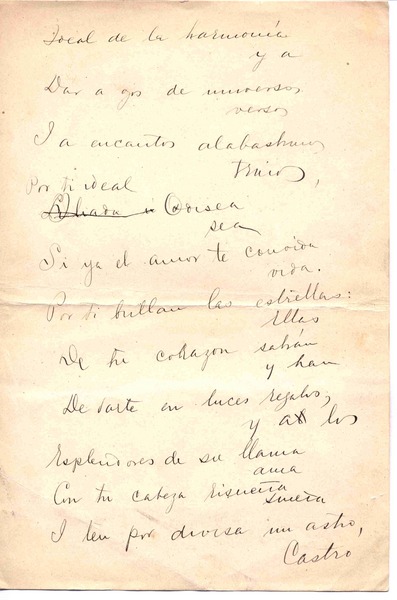 Ideal de la harmonía
y a
Dar a gos de universos
versos
I a encantos alabastrinos
trinos,
Por ti ideal
Odisea
sea
Si ya el amor te convida
vida.
Por ti brillan las estrellas:
Ellas
De tu corazon sabrán
y han
De darte en luces regalos,
y a los
Esplendores de su llama
ama
Con tu cabeza risueña
sueña
I ten por divisa un astro,
Castro